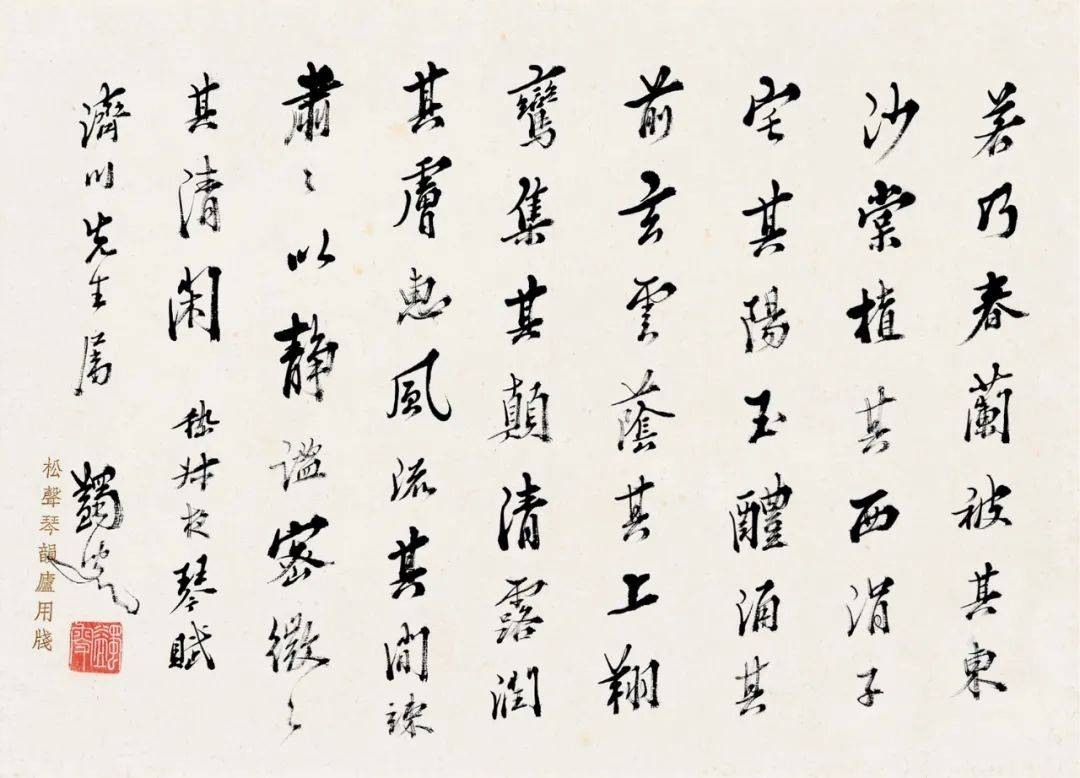 若乃春蘭被其東
沙棠植其西涓子
宅其陽玉醴涌其
前玄雲蔭其上翔
鸞集其顛清露潤
其膚惠風流其間竦
肅〻以静謐密微〻
其清閑 嵇叔夜琴賦
濟川先生属 蠲叟
松聲琴韻廬用牋